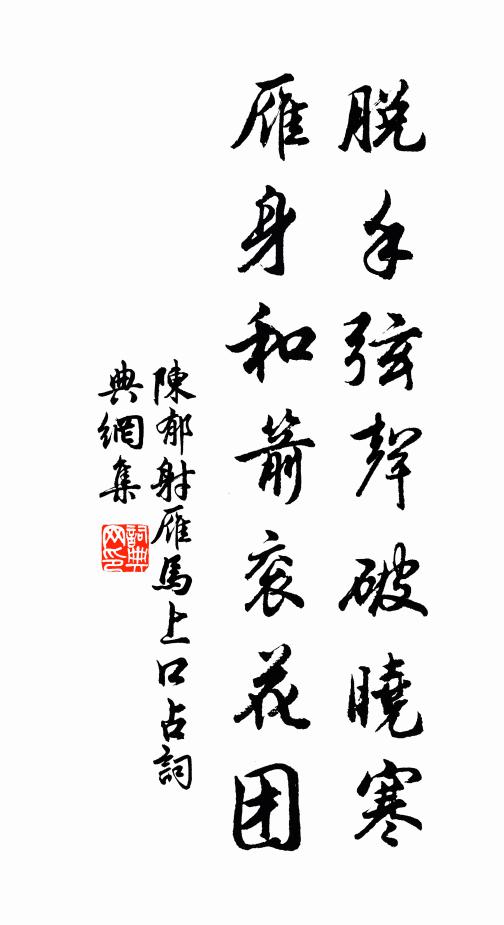 脱手弦聲破曉寒
雁身和箭衮花団
陳郁射雁馬上口占詞
典網集
詞典
网印